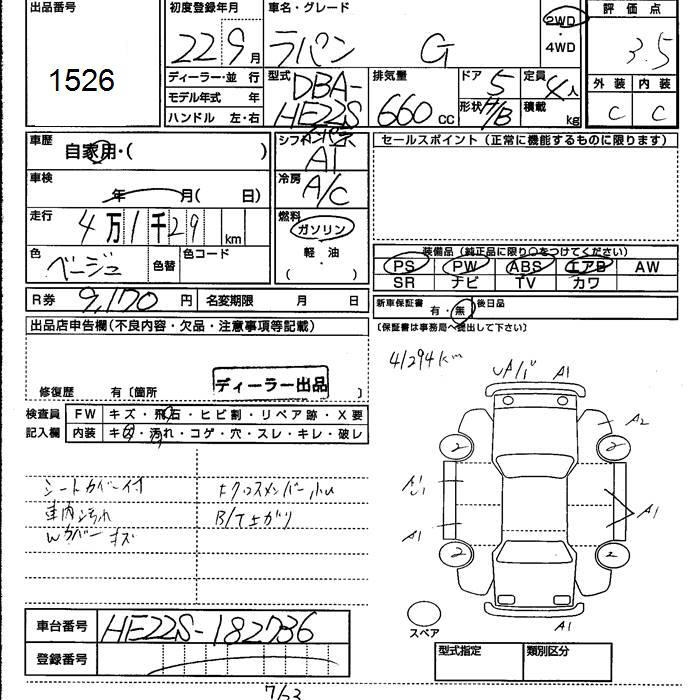 出品番号 初度登録年月 車名・グレード 2WD・4WD 評価点
1526 22 9月 ラパン G 3.5
ディーラー・並 行 型式 DBA-HE22S 排気量 660 CC ドア 5 定員 4人 外装 内装
モデル年式 年 形状 H/B 積載 kg C C
ハンドル 左・右
車歴 自家用・( ) シフト AT セールスポイント (正常に機能するものに限ります)
車検 年 月( 日) 冷房 A/C
走行 4万1千29 km 燃料 ガソリン 軽・油 ( )
色 ベージュ 色替 色コード 装備品 (純正品に限り○をつけてください)
PS PW ABS エアB AW
SR ナビ TV カワ
R券 9,170 円 名変期限 月 日 新車保証書 有・無 後日品
出品店申告欄(不良内容・欠品・注意事項等記載) (保証書は事務局へ提出して下さい)
41294km
修復歴 有〔箇所 〕 ディーラー出品
検査員 FW キズ・飛石・ヒビ割・リペア跡・X要
記入欄 内装 キズ・汚れ・コゲ・穴・スレ・キレ・破レ
A1
A2
2 2
シートカバー付
車内汚れ B/T上がり
Wカバー キズ
A1 A1
2 2
スペア A1
車台番号 HE22S-182736
登録番号
型式指定 類別区分
7/23